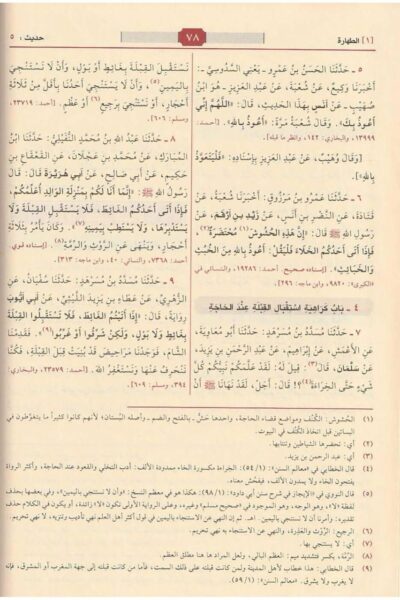 [١] الطهارة
٧٨
حديث : ٥
٥ ـ حَدَّثَنَا الحَسَنُ بنُ عَمْرٍو ـ يَعْنِي السَّدُوسِيَّ ـ:
أَخْبَرَنَا وَكِيعٌ، عَنْ شُعْبَةَ، عَنْ عَبْدِ العَزِيزِ ـ هُوَ ابْنُ
صُهَيْبٍ ـ عَنْ أَنَسٍ بِهَذَا الحَدِيثِ، قَالَ: «اللَّهُمَّ إِنِّي
أَعُوذُ بِكَ». وَقَالَ شُعْبَةُ: وَقَالَ مَرَّةً: «أَعُوذُ بِاللهِ». [أحمد:
١٣٩٩٩، والبخاري: ١٤٢، وانظر ما قبله].
[وَقَالَ وُهَيْبٌ، عَنْ عَبْدِ العَزِيزِ بِإِسْنَادِهِ: «فَلْيَتَعَوَّذْ
بِاللهِ»].
٦ ـ حَدَّثَنَا عَمْرُو بنُ مَرْزُوقٍ: أَخْبَرَنَا شُعْبَةُ، عَنْ
قَتَادَةَ، عَنِ النَّضْرِ بنِ أَنَسٍ، عَنْ زَيْدِ بنِ أَرْقَمَ، عَنْ
رَسُولِ اللهِ ﷺ قَالَ: «إِنَّ هَذِهِ الحُشُوشَ(١) مُحْتَضَرَةٌ(٢)
فَإِذَا أَتَى أَحَدُكُمُ الخَلَاءَ فَلْيَقُلْ: أَعُوذُ بِاللهِ مِنَ الخُبُثِ
وَالخَبَائِثِ». [إسناده صحيح. أحمد: ١٩٢٨٦، والنسائي في
«الكبرى»: ٩٨٢٠، وابن ماجه: ٢٩٦].
٤ ـ بَابُ كَرَاهِيَةِ اسْتِقْبَالِ القِبْلَةِ عِنْدَ الحَاجَةِ
٧ ـ حَدَّثَنَا مُسَدَّدُ بنُ مُسَرْهَدٍ: حَدَّثَنَا أَبُو مُعَاوِيَةَ،
عَنِ الأَعْمَشِ، عَنْ إِبْرَاهِيمَ، عَنْ عَبْدِ الرَّحْمَنِ بنِ يَزِيدَ،
عَنْ سَلْمَانَ، قَالَ(٣): قِيلَ لَهُ: لَقَدْ عَلَّمَكُمْ نَبِيُّكُمْ كُلَّ
شَيْءٍ حَتَّى الخِرَاءَةَ(٤)؟! قَالَ: أَجَلْ، لَقَدْ نَهَانَا ﷺ أَنْ
نَسْتَقْبِلَ القِبْلَةَ بِغَائِطٍ أَوْ بَوْلٍ، وَأَنْ لَا نَسْتَنْجِيَ
بِاليَمِينِ(٥)، وَأَنْ لَا يَسْتَنْجِيَ أَحَدُنَا بِأَقَلَّ مِنْ ثَلَاثَةِ
أَحْجَارٍ، أَوْ نَسْتَنْجِيَ بِرَجِيعٍ(٦) أَوْ عَظْمٍ. [أحمد: ٢٣٧١٩،
ومسلم: ٦٠٦].
٨ ـ حَدَّثَنَا عَبْدُ اللهِ بنُ مُحَمَّدٍ النُّفَيْلِيُّ: حَدَّثَنَا ابْنُ
المُبَارَكِ، عَنْ مُحَمَّدِ بنِ عَجْلَانَ، عَنِ القَعْقَاعِ بنِ
حَكِيمٍ، عَنْ أَبِي صَالِحٍ، عَنْ أَبِي هُرَيْرَةَ قَالَ: قَالَ
رَسُولُ اللهِ ﷺ: «إِنَّمَا أَنَا لَكُمْ بِمَنْزِلَةِ الوَالِدِ أُعَلِّمُكُمْ،
فَإِذَا أَتَى أَحَدُكُمُ الغَائِطَ، فَلَا يَسْتَقْبِلِ القِبْلَةَ وَلَا
يَسْتَدْبِرْهَا، وَلَا يَسْتَطِبْ بِيَمِينِهِ(٧)». وَكَانَ يَأْمُرُ بِثَلَاثَةِ
أَحْجَارٍ، وَيَنْهَى عَنِ الرَّوْثِ وَالرِّمَّةِ(٨). [إسناده قوي.
أحمد: ٧٣٦٨، والنسائي: ٤٠، وابن ماجه: ٣١٣].
٩ ـ حَدَّثَنَا مُسَدَّدُ بنُ مُسَرْهَدٍ: حَدَّثَنَا سُفْيَانُ، عَنِ
الزُّهْرِيِّ، عَنْ عَطَاءِ بنِ يَزِيدَ اللَّيْثِيِّ، عَنْ أَبِي أَيُّوبَ
رِوَايَةً، قَالَ: «إِذَا أَتَيْتُمُ الغَائِطَ، فَلَا تَسْتَقْبِلُوا القِبْلَةَ
بِغَائِطٍ وَلَا بَوْلٍ، وَلَكِنْ شَرِّقُوا أَوْ غَرِّبُوا(٩)». فَقَدِمْنَا
الشَّامَ، فَوَجَدْنَا مَرَاحِيضَ قَدْ بُنِيَتْ قِبَلَ القِبْلَةِ، فَكُنَّا
نَنْحَرِفُ عَنْهَا وَنَسْتَغْفِرُ اللهَ. [أحمد: ٢٣٥٧٩، والبخاري:
٣٩٤، ومسلم: ٦٠٩].
(١) الحُشوش: الكُنُف ومواضع قضاء الحاجة، واحدها حَشّ ـ بالفتح والضم ـ وأصله البستان؛ لأنهم كانوا كثيراً ما يتغوَّطون في
البساتين قبل اتخاذ الكُنُف في البيوت.
(٢) أي: تحضرها الشياطين وتنتابها.
(٣) أي: عبد الرحمن بن يزيد.
(٤) قال الخطابي في «معالم السنن» (١/ ٥٤): الخِراءة مكسورة الخاء ممدودة الألف: أدب التخلي والقعود عند الحاجة، وأكثر الرواة
يفتحون الخاء ولا يمدون الألف، فيفحُش معناه.
(٥) قال النووي في «الإيجاز في شرح سنن أبي داود» (١/ ٩٨): هكذا هو في معظم النسخ: «وأن لا نستنجي باليمين»، وفي بعضها بحذف
لفظة «لا»، وهو الوجه، وهو الموجود في «صحيح مسلم» وغيره، وعلى الرواية الأولى تكون «لا» زائدة، أو يكون في الكلام حذف
تقديره: وأمرنا أن لا نستنجي باليمين. اهـ. ثم إن النهي عن الاستنجاء باليمين في قول أكثر أهل العلم نهي تأديب وتنزيه، لا نهي تحريم.
(٦) الرجيع: الرَّوْث والعَذِرة، والنهي عن الاستنجاء به نهي تحريم.
(٧) أي: لا يستنجي بها.
(٨) الرِّمَّة، بكسر فتشديد ميم: العظم البالي، ولعل المراد ها هنا مطلق العظم.
(٩) قال الخطابي: هذا خطاب لأهل المدينة ولمن كانت قبلته على ذلك السمت، فأما من كانت قبلته إلى جهة المغرب أو المشرق، فإنه
لا يغرب ولا يشرق. «معالم السنن»: (١/ ٥٩).